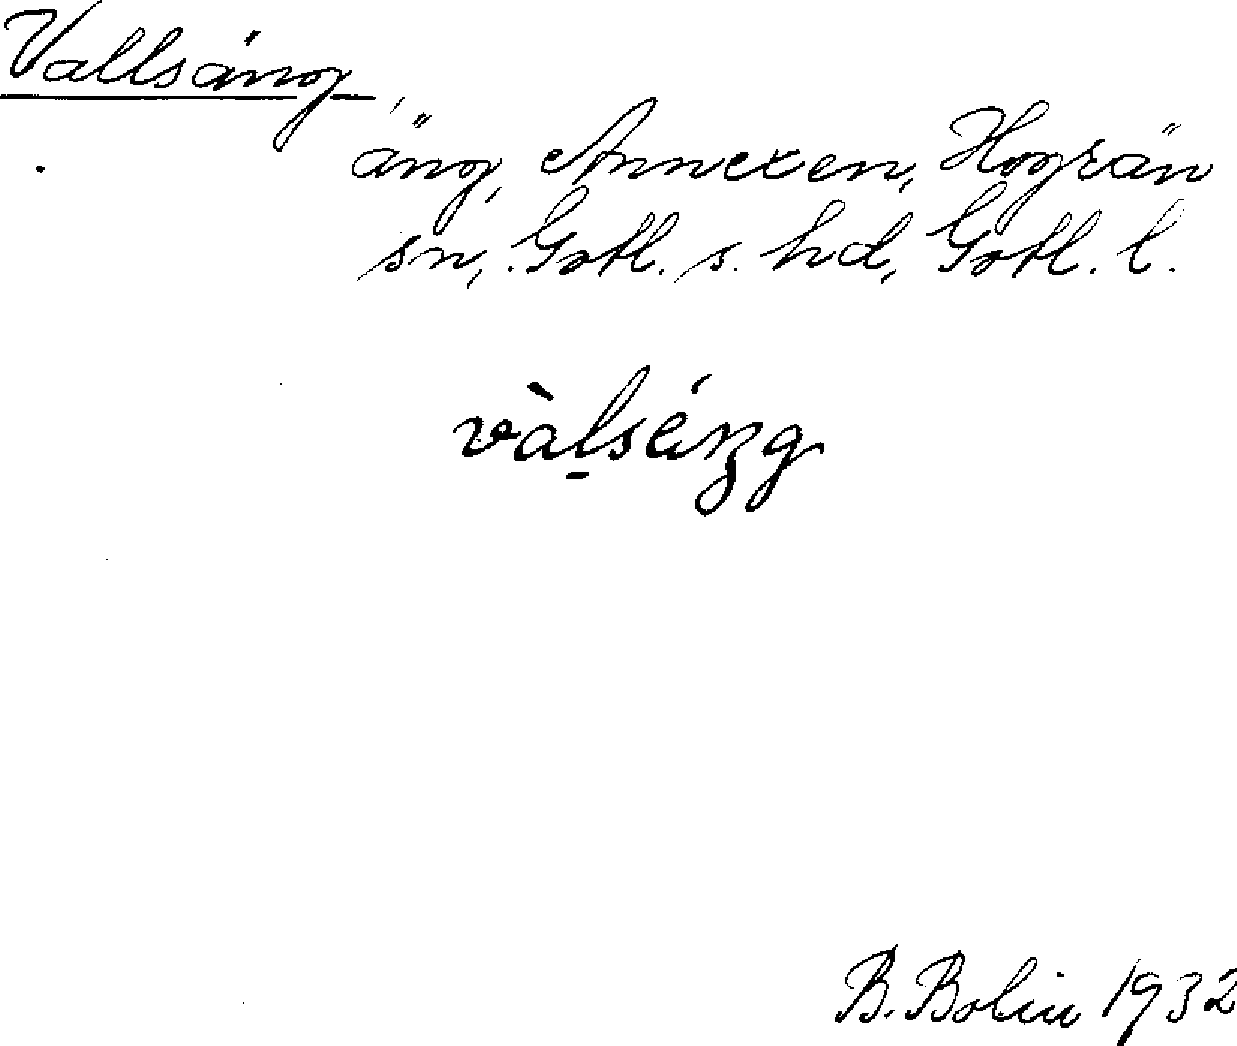 Vallsäng,
äng, Annexen, Hogrän
sn, Gotl. s. hd, Gotl. l.
vàḷséŋg
B. Bolin 1932